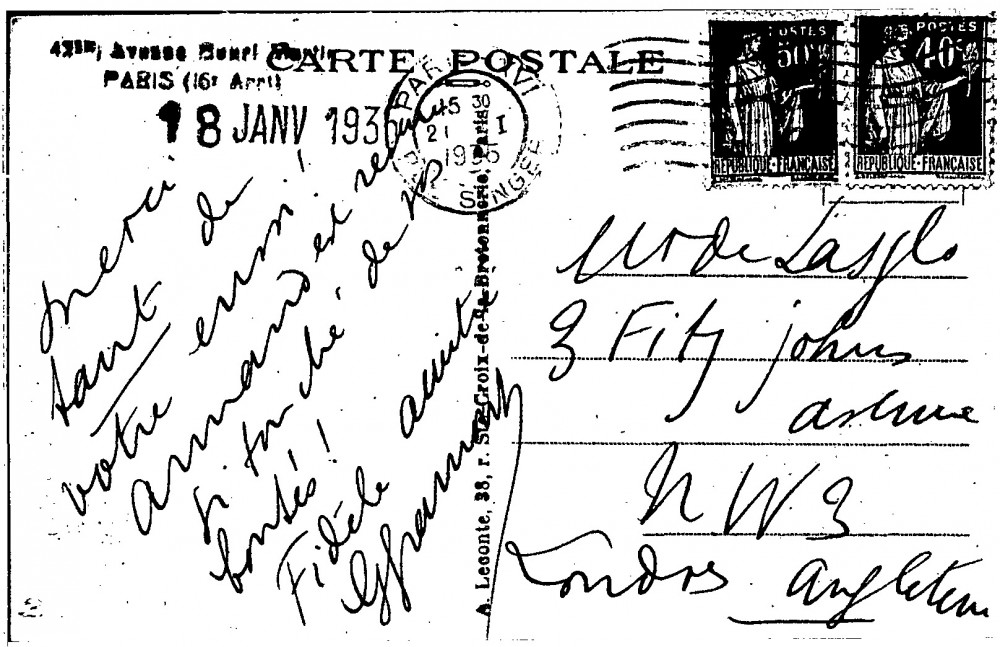 Avenue Henri Martin
PARIS (16e Arrt)
CARTE POSTALE
18 JANV 1936
PARIS XVI
15 30
21 I
1935
SINGER
POSTES
50c
REPUBLIQUE-FRANÇAISE
POSTES
40c
REPUBLIQUE-FRANÇAISE
merci
tant de
votre envoi!
Armand est revenu
si touché de vos
bontés!
Fidèle amitié
Ggramont
A. Leconte, 38, r. Ste-Croix-de-la-Bretonnerie, Paris
Mr de Laszlo
3 Fitz johns
avenue
N W 3
Londres Angleterre